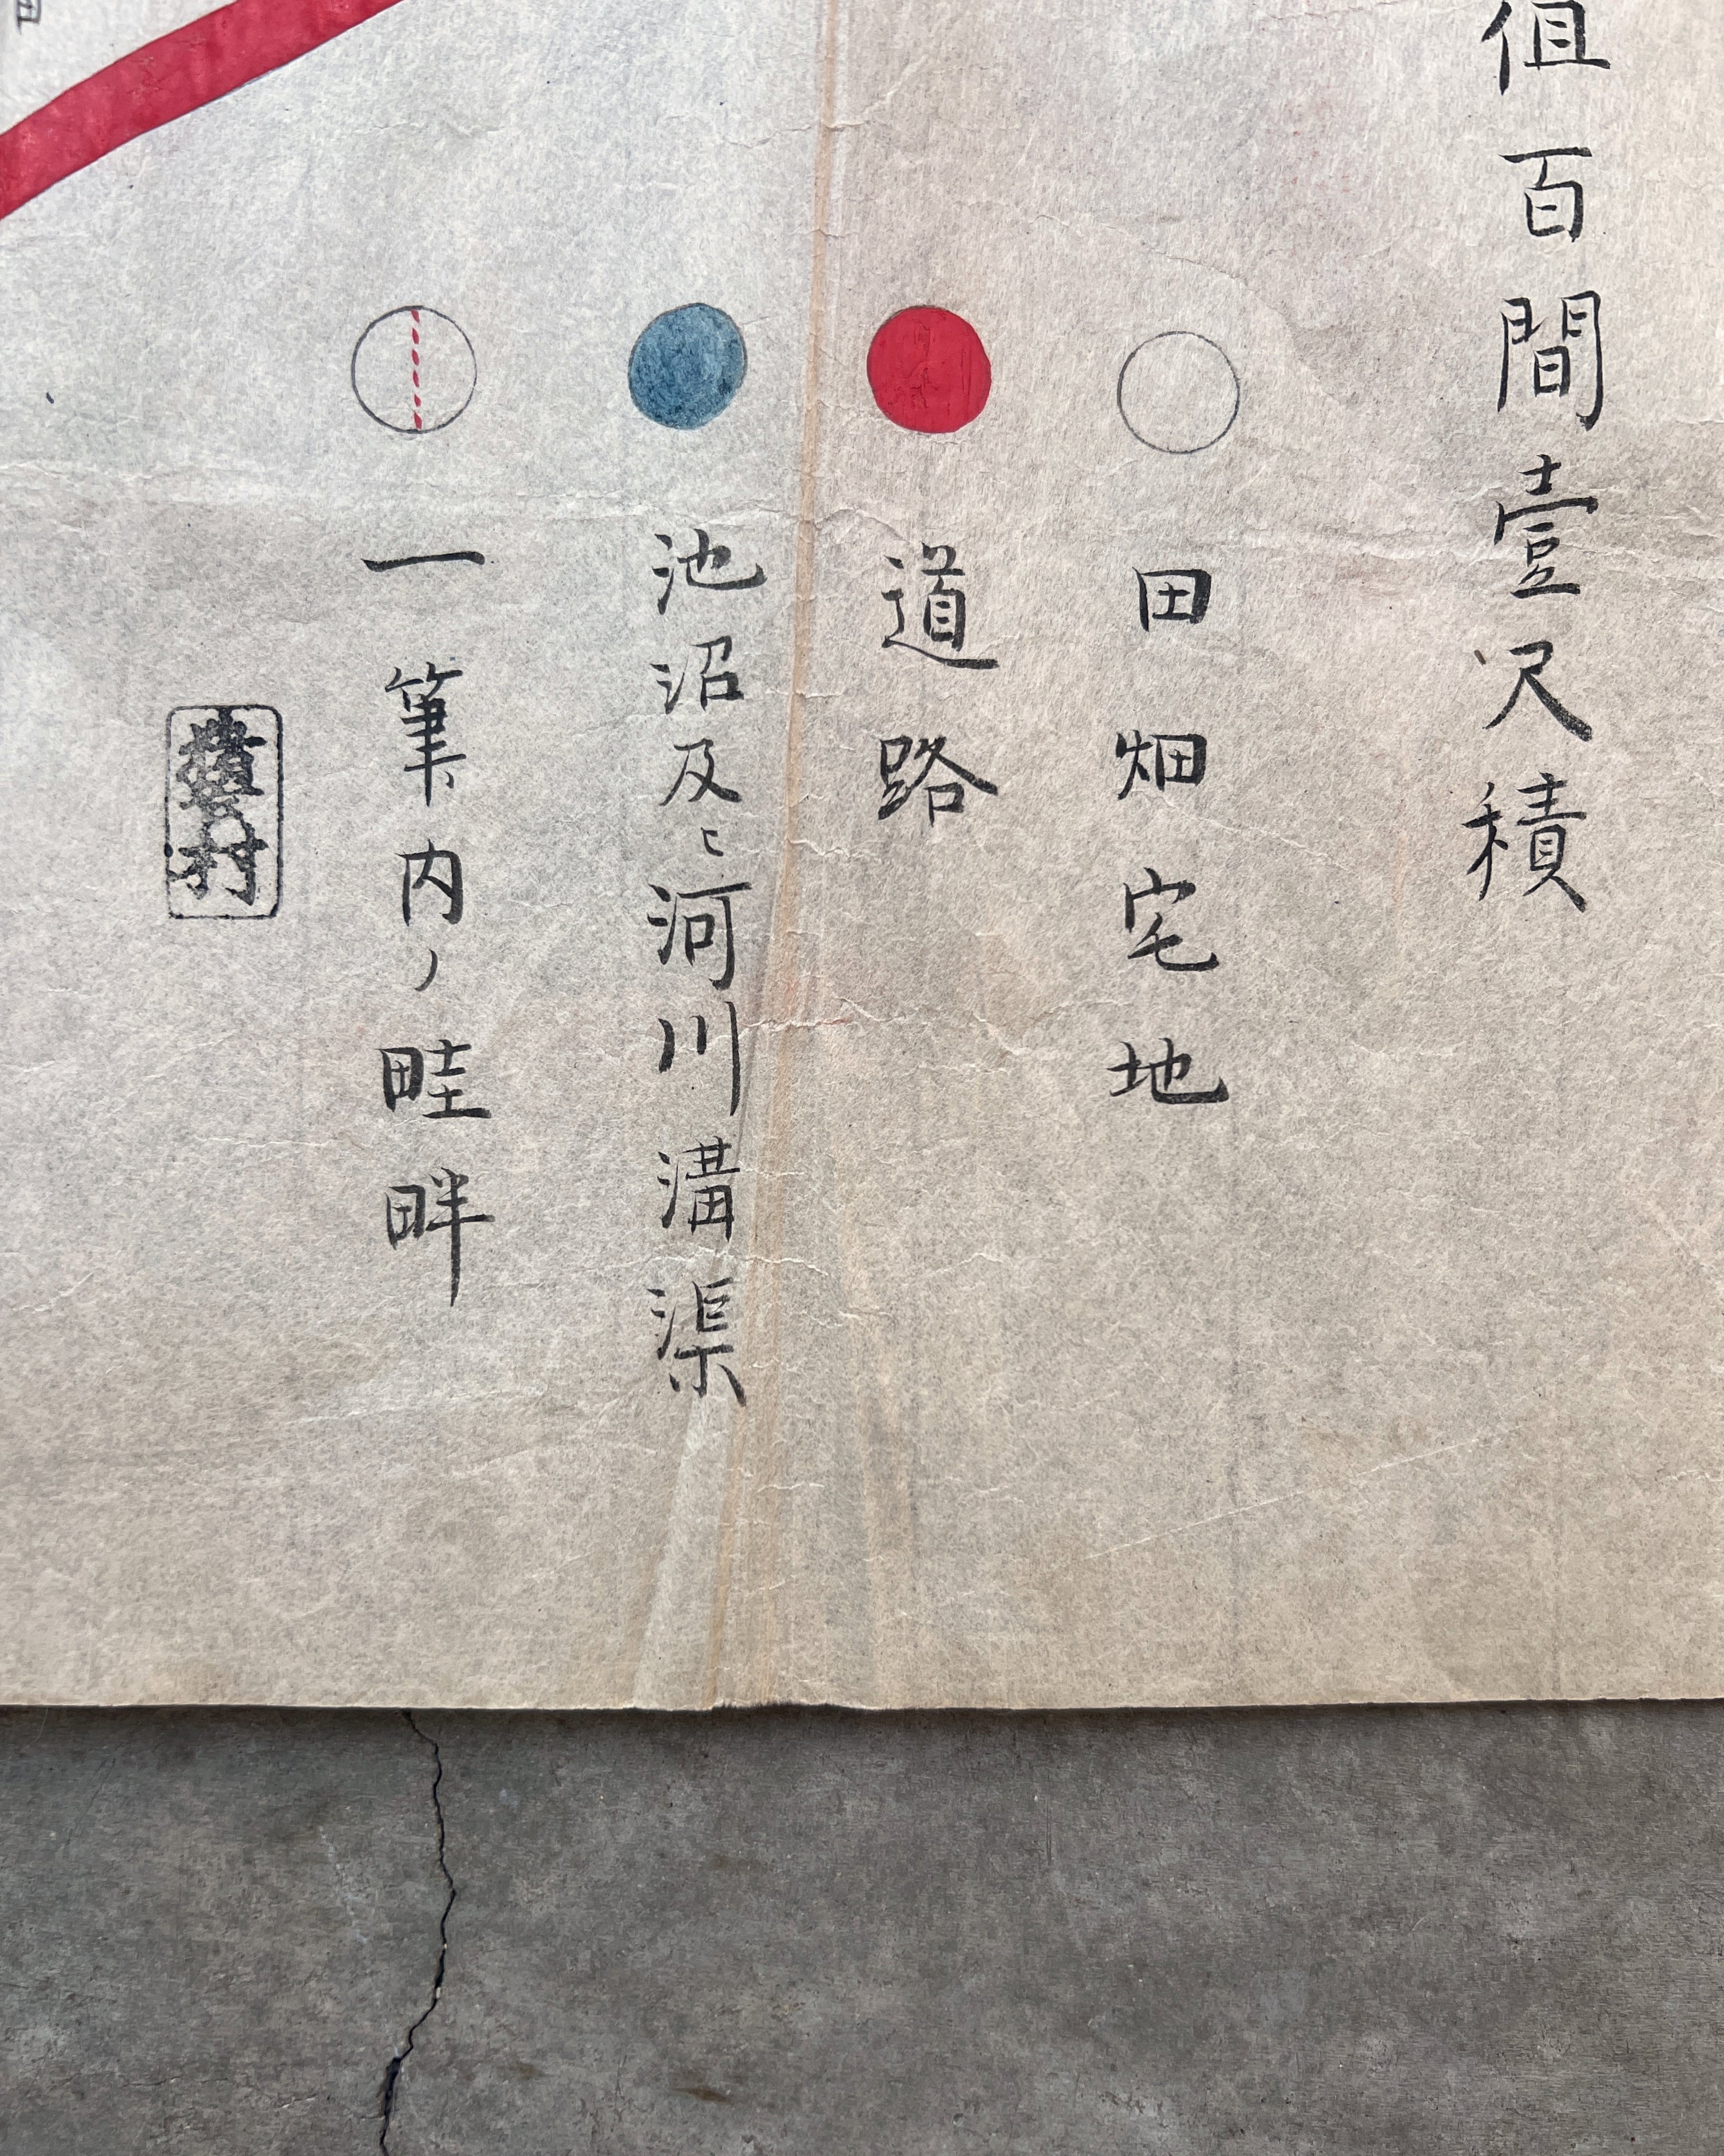 但百間壹尺積
田畑宅地
道路
池沼及ヒ河川溝渠
一筆内ノ畦畔
村